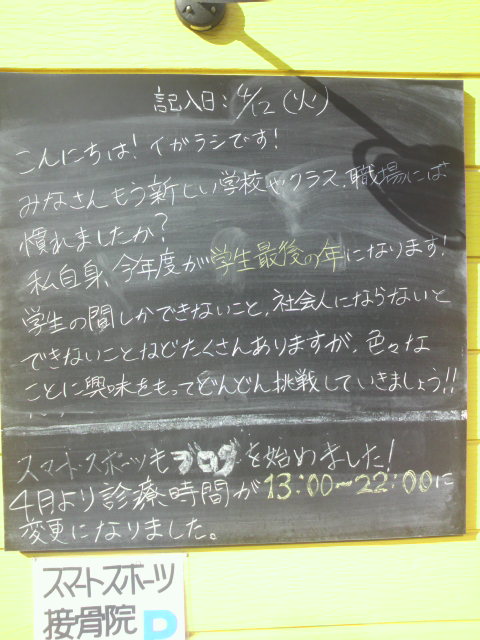 記入日：4/12（火）
こんにちは！イガラシです！
みなさんもう新しい学校やクラス、職場には
慣れましたか？
私自身、今年度が学生最後の年になります！
学生の間しかできないこと、社会人にならないと
できないことなどたくさんありますが、色々な
ことに興味をもってどんどん挑戦していきましょう！！
スマートスポーツもブログを始めました！
4月より診療時間が13:00～22:00に
変更になりました。
スマートスポーツ
接骨院 P